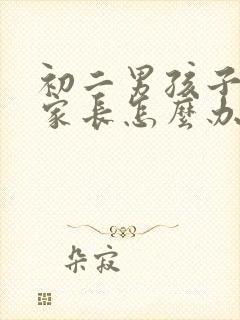 初二男孩子
家长怎麽办
朵寂